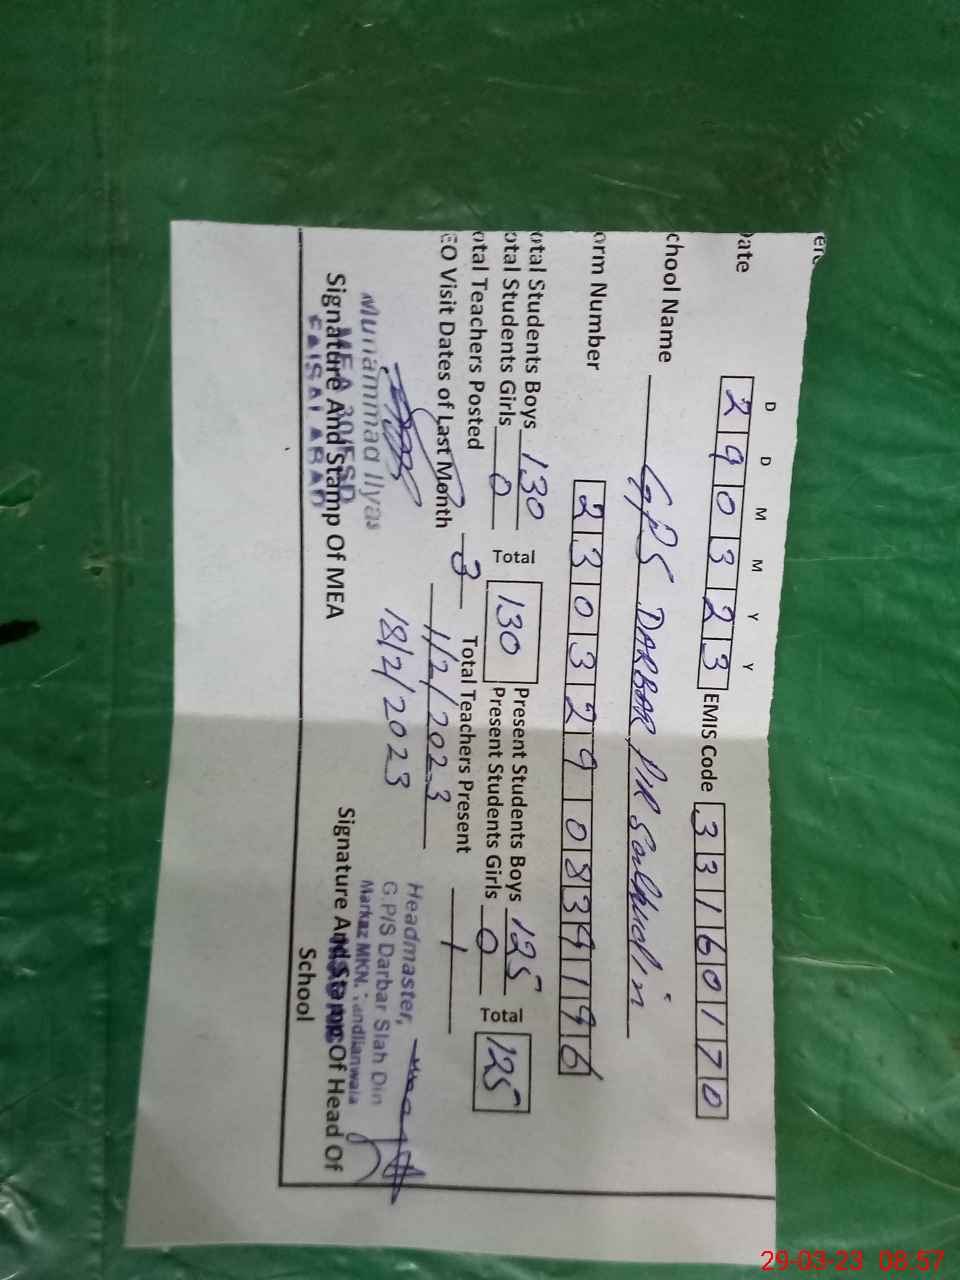 D D M M Y Y
ate 2 9 0 3 2 3 EMIS Code 3 3 1 6 0 1 7 0
chool Name GPS DARBAR PIR
orm Number 2 3 0 3 2 9 0 8 3 9 1 9 6
otal Students Boys 130 Total 130 Present Students Boys 125 Total 125
otal Students Girls 0 Present Students Girls 0
otal Teachers Posted 3 Total Teachers Present 1
EO Visit Dates of Last Month 1/2/2023
18/2/2023
Muhammad Ilyas
MEA 30/FSD
FAISALABAD
Signature And Stamp Of MEA
Headmaster,
G.P/S Darbar Slah Din
Markaz MKN.
Signature And Stamp Of Head Of
School
29-03-23 08:57